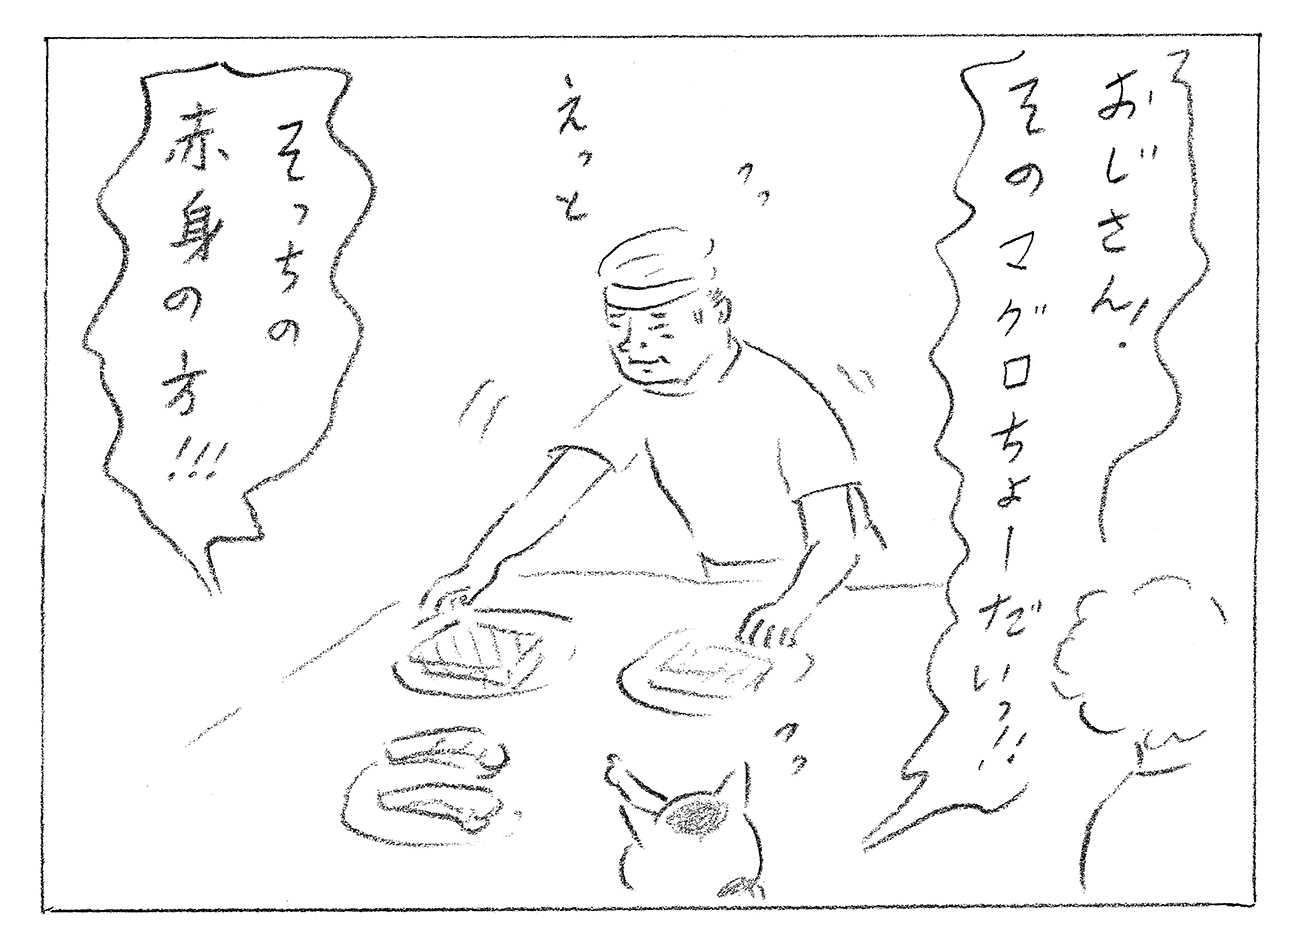 おじさん!
そのマグロちょーだいっ!!
えっと
そっちの
赤身の方!!!